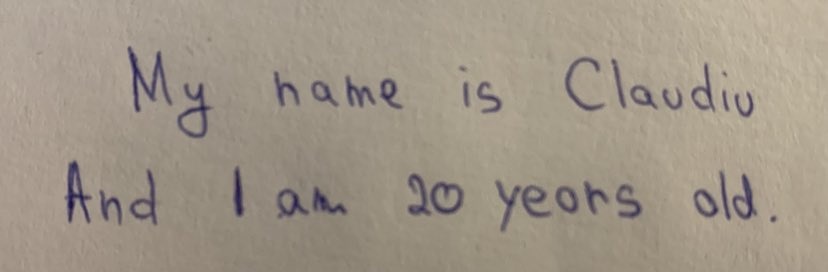 My name is Claudiu
And I am 20 years old.